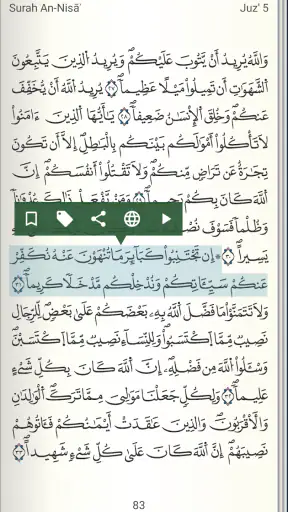 Surah An-Nisāʾ Juz' 5
وَاللَّهُ يُرِيدُ أَنْ يَتُوبَ عَلَيْكُمْ وَيُرِيدُ الَّذِينَ يَتَّبِعُونَ
الشَّهَوَاتِ أَنْ تَمِيلُوا مَيْلًا عَظِيمًا ٢٧ يُرِيدُ اللَّهُ أَنْ يُخَفِّفَ
عَنكُمْ وَخُلِقَ الْإِنسَانُ ضَعِيفًا ٢٨ يَا أَيُّهَا الَّذِينَ ءَامَنُوا
لَا تَأْكُلُوا أَمْوَالَكُم بَيْنَكُم بِالْبَاطِلِ إِلَّا أَن تَكُونَ
تِجَارَةً عَن تَرَاضٍ مِّنكُمْ وَلَا تَقْتُلُوا أَنفُسَكُمْ إِنَّ
اللَّهَ كَانَ بِكُمْ
وَظُلْمًا فَسَوْفَ
يَسِيرًا ٣٠ إِن تَجْتَنِبُوا كَبَائِرَ مَا تُنْهَوْنَ عَنْهُ نُكَفِّرْ
عَنكُمْ سَيِّئَاتِكُمْ وَنُدْخِلْكُم مُّدْخَلًا كَرِيمًا ٣١
وَلَا تَتَمَنَّوْا مَا فَضَّلَ اللَّهُ بِهِ بَعْضَكُمْ عَلَىٰ بَعْضٍ لِّلرِّجَالِ
نَصِيبٌ مِّمَّا اكْتَسَبُوا وَلِلنِّسَاءِ نَصِيبٌ مِّمَّا اكْتَسَبْنَ
وَسْـَٔلُوا اللَّهَ مِن فَضْلِهِ إِنَّ اللَّهَ كَانَ بِكُلِّ شَيْءٍ
عَلِيمًا ٣٢ وَلِكُلٍّ جَعَلْنَا مَوَالِيَ مِمَّا تَرَكَ الْوَالِدَانِ
وَالْأَقْرَبُونَ وَالَّذِينَ عَقَدَتْ أَيْمَانُكُمْ فَـَٔاتُوهُمْ
نَصِيبَهُمْ إِنَّ اللَّهَ كَانَ عَلَىٰ كُلِّ شَيْءٍ شَهِيدًا ٣٣
83